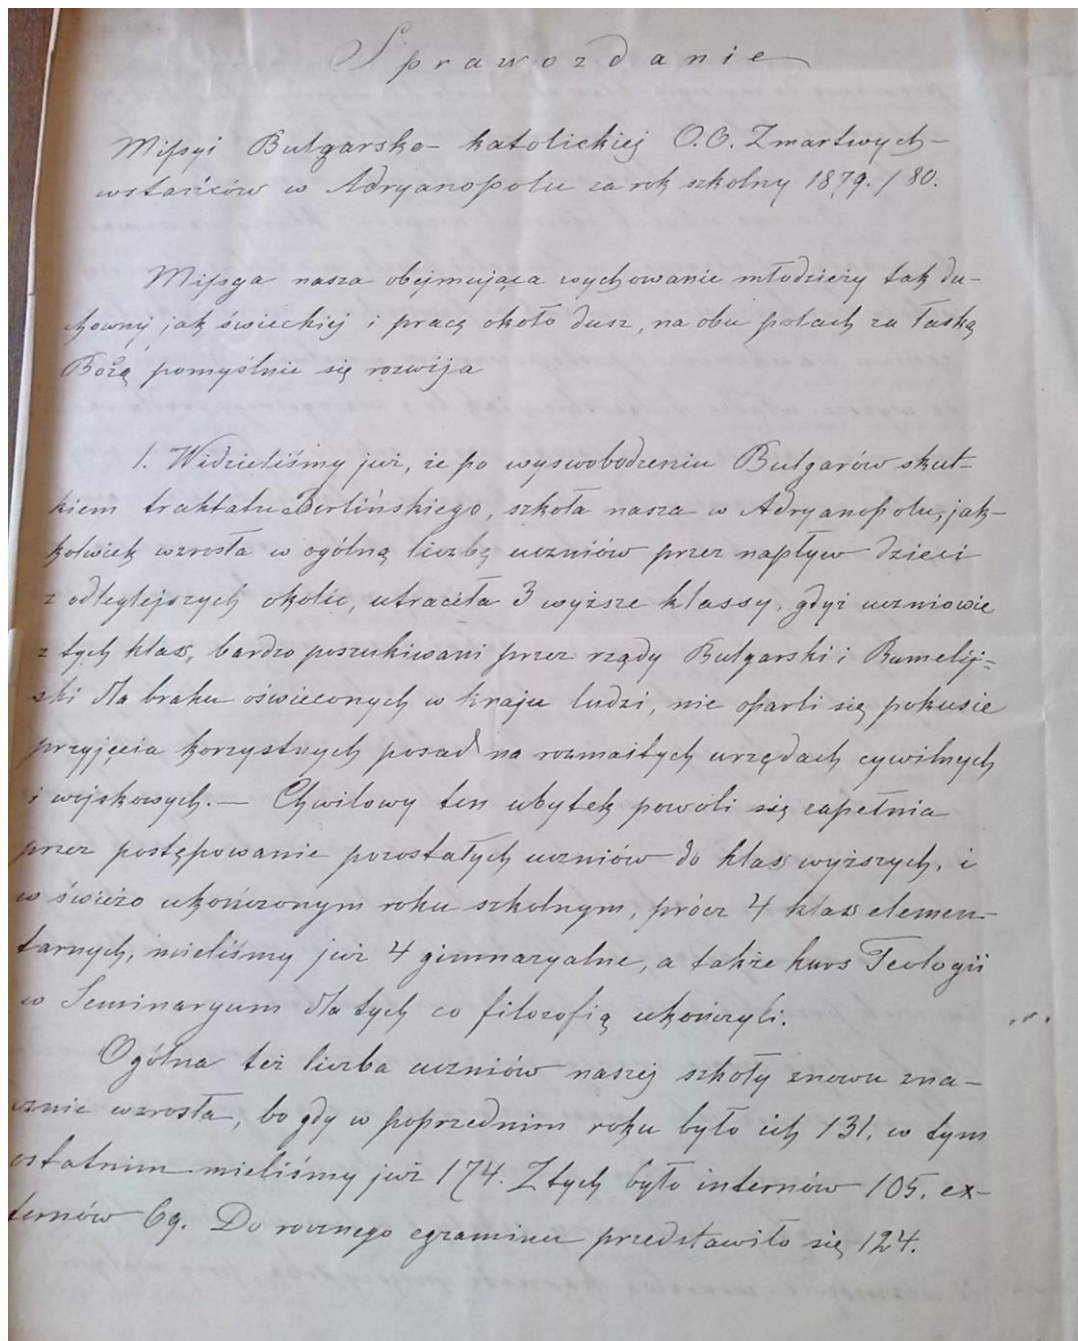 Sprawozdanie
Missyi Bulgarsko-katolickiej O.O. Zmartwych-
wstańców w Adryanopolu za rok szkolny 1879./80.
Missya nasza obejmująca wychowanie młodzieży tak du-
chownej jak świeckiej i pracę około dusz, na obu polach za łaską
Bożą pomyślnie się rozwija
1. Widzieliśmy już, że po wyswobodzeniu Bulgarów skut-
kiem traktatu Berlińskiego, szkoła nasza w Adryanopolu, jak-
kolwiek wzrosła w ogólną liczbę uczniów przez napływ dzieci
z odleglejszych okolic, utraciła 3 wyższe klassy, gdyż uczniowie
z tych klass, bardzo poszukiwani przez rządy Bulgarski i Rumelij-
ski dla braku oświeconych w kraju ludzi, nie oparli się pokusie
przyjęcia korzystnych posad na rozmaitych urzędach cywilnych
i wojskowych. — Chwilowy ten ubytek powoli się zapełnia
przez postępowanie pozostałych uczniów do klass wyższych, i
w świeżo ukończonym roku szkolnym, prócz 4 klass elemen-
tarnych, mieliśmy już 4 gimnazyalne, a także kurs Teologii
w Seminaryum dla tych co filozofią ukończyli.
Ogólna też liczba uczniów naszej szkoły znowu zna-
cznie wzrosła, bo gdy w poprzednim roku było ich 131. w tym
ostatnim mieliśmy już 174. Z tych było internów 105. ex-
ternów 69. Do rocznego egzaminu przedstawiło się 124.